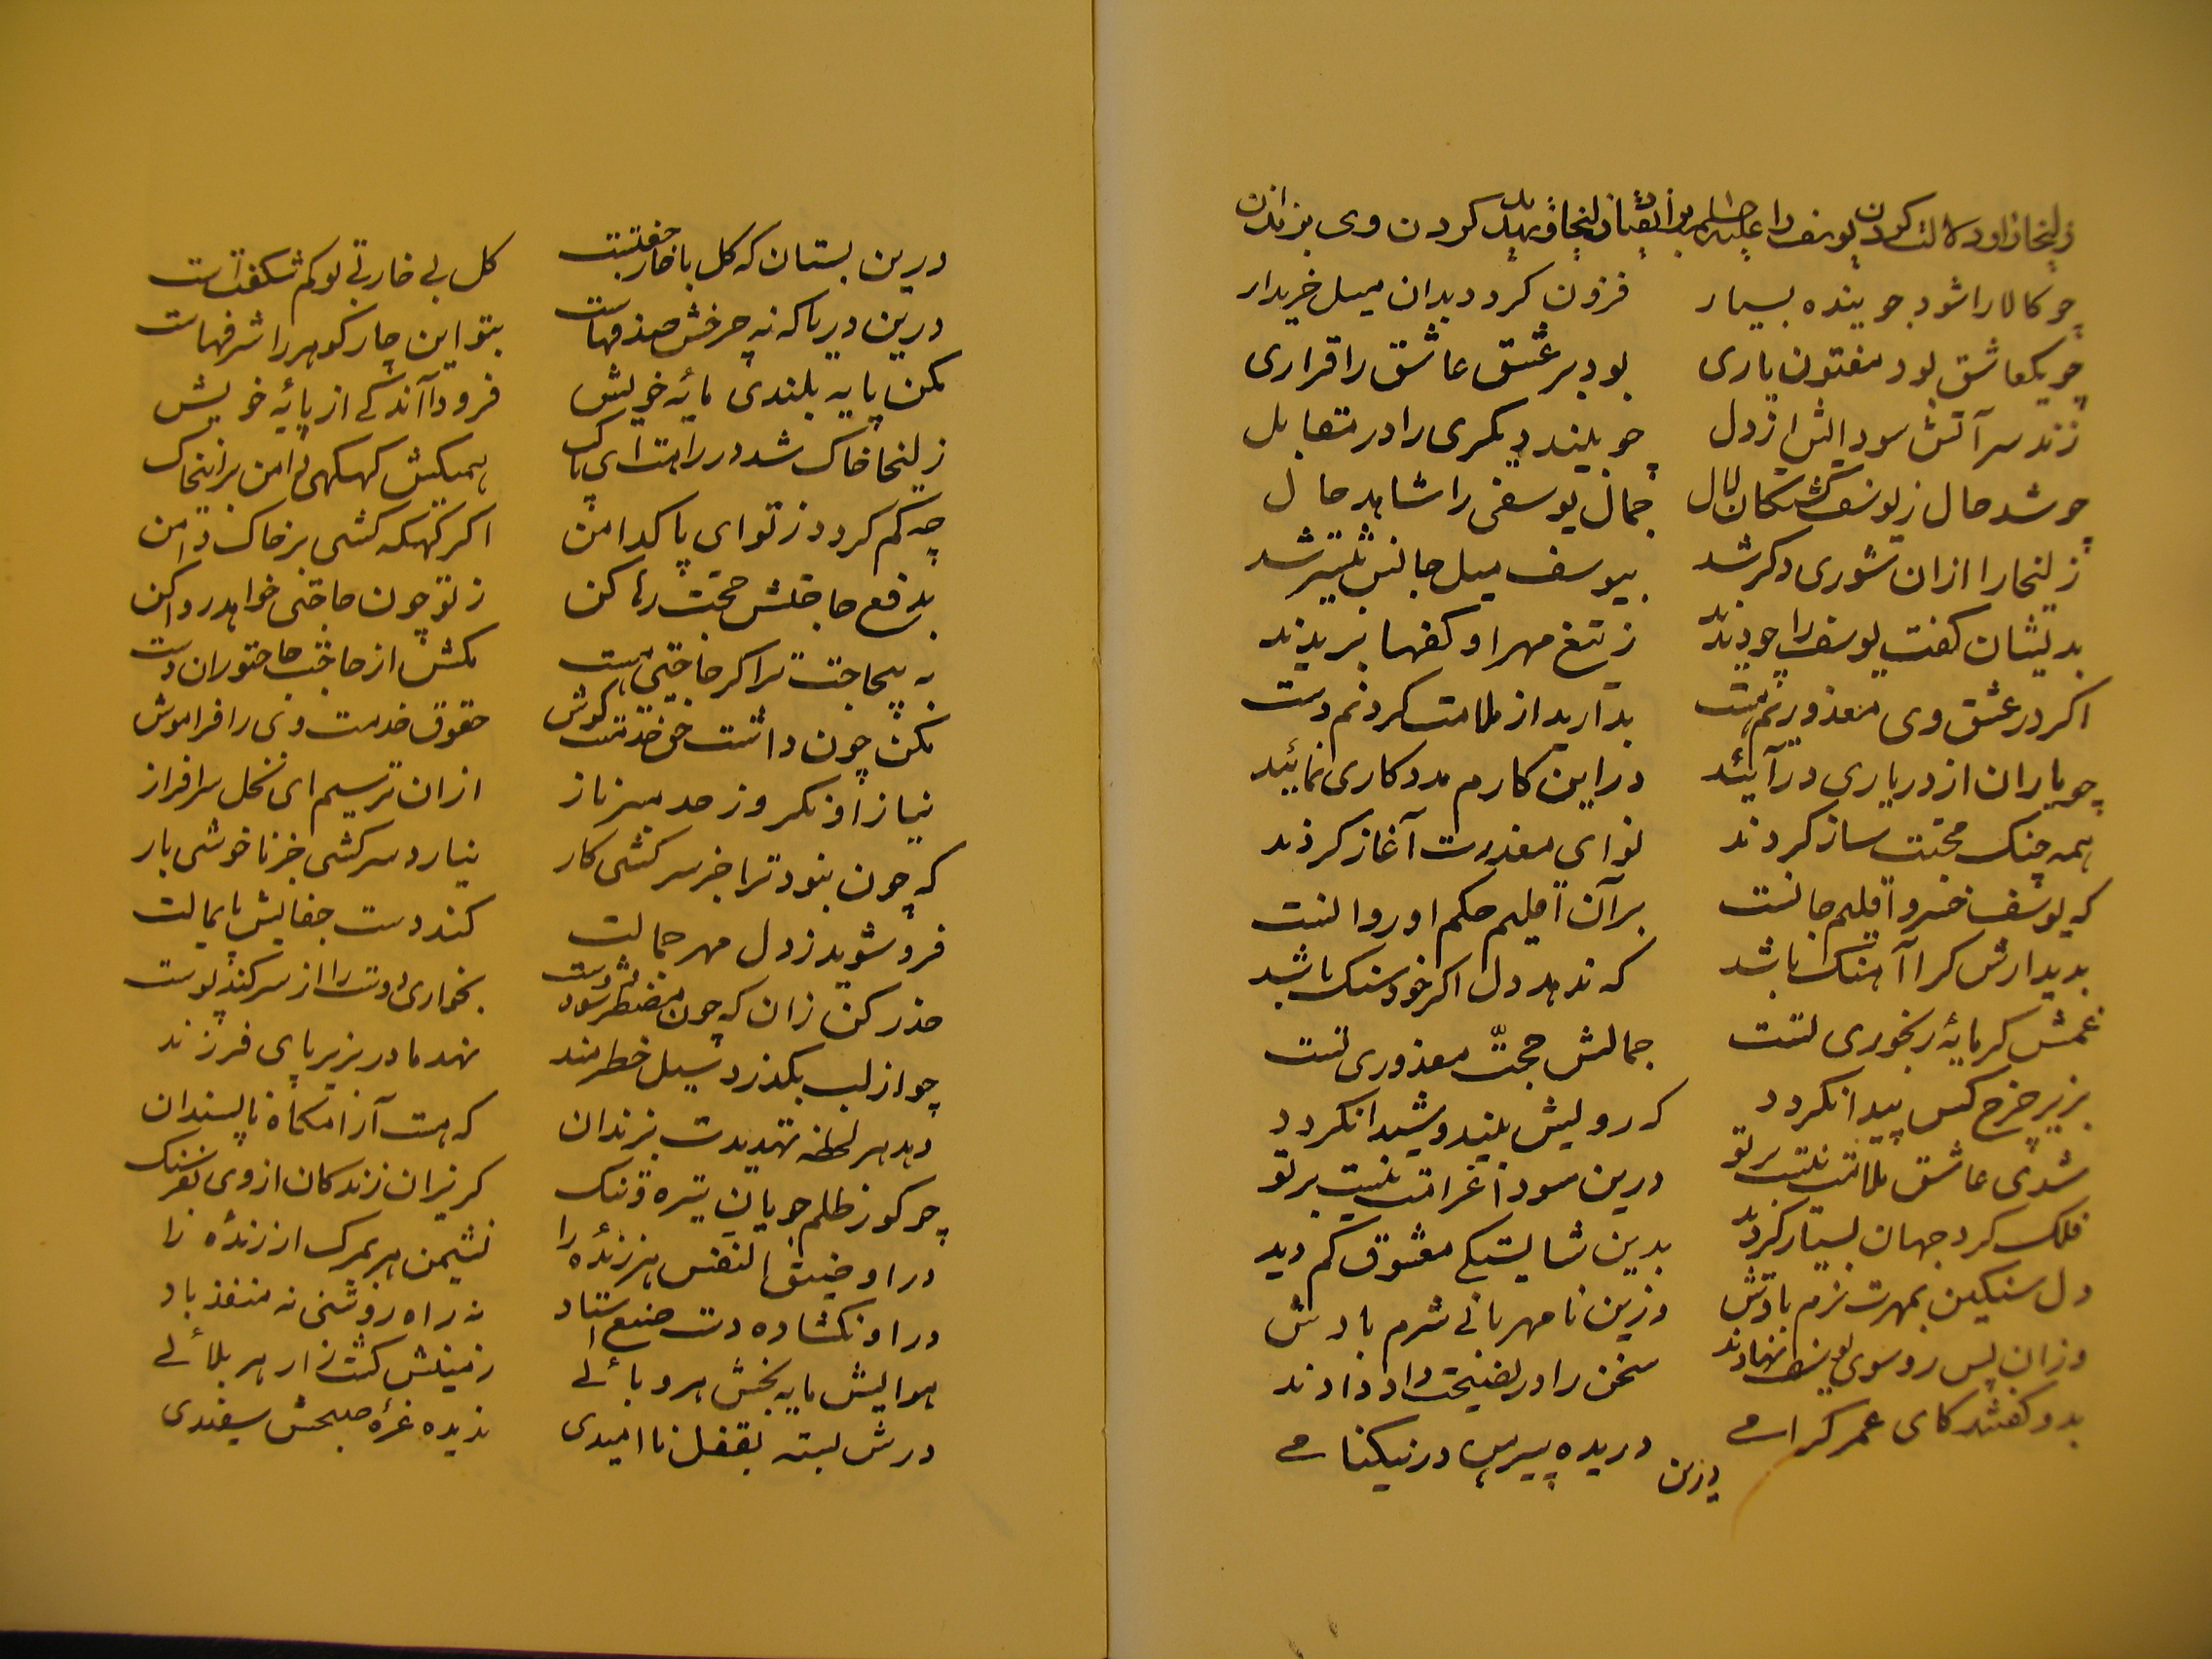 زلیخا را و دلالت کردن یوسف را علیه السلم بر انقیاد زلیخا و تهدید کردن وی بزندان
چو کالا را شود جوینده بسیار فزون کردد بدان میل خریدار
چو یکعاشق بود مفتون یاری بود بر عشق عاشق را قراری
زند سر آتش سودایش از دل چو بیند دیکری را در مقابل
چو شد حال زیوسف کشتکان لال جمال یوسفی را شاهد حال
زلیخا را ازان شوری دکر شد بیوسف میل جانش بیشتر شد
بدیشان کفت یوسف را چو دیدید ز تیغ مهر او کفها بریدید
اکر در عشق وی معذوریم هست بدارید از ملامت کردنم دست
چو یاران از در یاری درآئید در این کارم مددکاری نمائید
همه چنک محبت ساز کردند نوای معذرت آغاز کردند
که یوسف خسرو اقلیم جانست بران اقلیم حکم او روانست
بدیدارش کرا آهنک باشد که ندهد دل اکر خود سنک باشد
غمش کر مایۀ رنجوری تست جمالش حجت معذوری تست
بزیر چرخ کس پیدا نکردد که رویش بیند و شیدا نکردد
شدی عاشق ملامت نیست بر تو درین سودا غرامت نیست بر تو
فلک کرد جهان بسیار کردید بدین شایستکی معشوق کم دید
دل سنکین بمهرت نرم بادش وزین نامهربانی شرم بادش
وزان پس رو سوی یوسف نهادند سخن را در نصیحت داد دادند
بدو کفتند کای عمر کرامی دریده پیرهن در نیکنامی
درین
درین بستان که کل با خار جفتست کل بی خار نی تو کم شکفتست
درین دریا که نه چرخش صدفهاست بتو این چار کوهر را شرفهاست
مکن پایه بلندی مایۀ خویش فرود آ اندکی از پایۀ خویش
زلیخا خاک شد در راهت ای پاک همیکش کهکهی دامن برین خاک
چه کم کردد ز تو ای پاکدامن اکر کهکه کشی بر خاک دامن
بدفع حاجتش حجت رها کن ز تو چون حاجتی خواهد روا کن
نه بیحاجت ترا کر حاجتی هست مکش از حاجت حاجتوران دست
مکن چون داشت حق خدمتت کوش حقوق خدمت وی را فراموش
نیاز او نکر وز حد مبر ناز ازان ترسیم ای نخل سرافراز
که چون نبود ترا جز سرکشی کار نیارد سرکشی جز ناخوشی بار
فرو شوید ز دل مهر جمالت کند دست جفایش پایمالت
حذر کن زان که چون مضطر شود دوست بخواری دوست را از سر کند پوست
چو از لب بکذرد سیل خطرمند نهد مادر بزیر پای فرزند
دهد هر لحظه تهدیدت بزندان که هست آرامکاه ناپسندان
چو کور ظلم جویان تیره و تنک کریزان زندکان از وی بفرسنک
در او ضیق النفس هر زنده را نشیمن هر بمرک ارزنده را
در او نکشاده دست صنع استاد نه راه روشنی نه منفذ باد
هوایش مایه بخش هر وبائی زمینش کشت زار هر بلائی
درش بسته بقفل ناامیدی ندیده غرۀ صبحش سفیدی